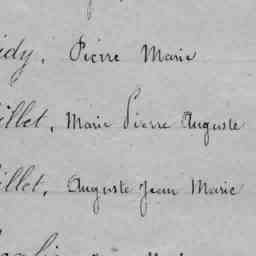 idy, Pierre Marie
illet, Marie Pierre Auguste
illet, Auguste Jean Marie